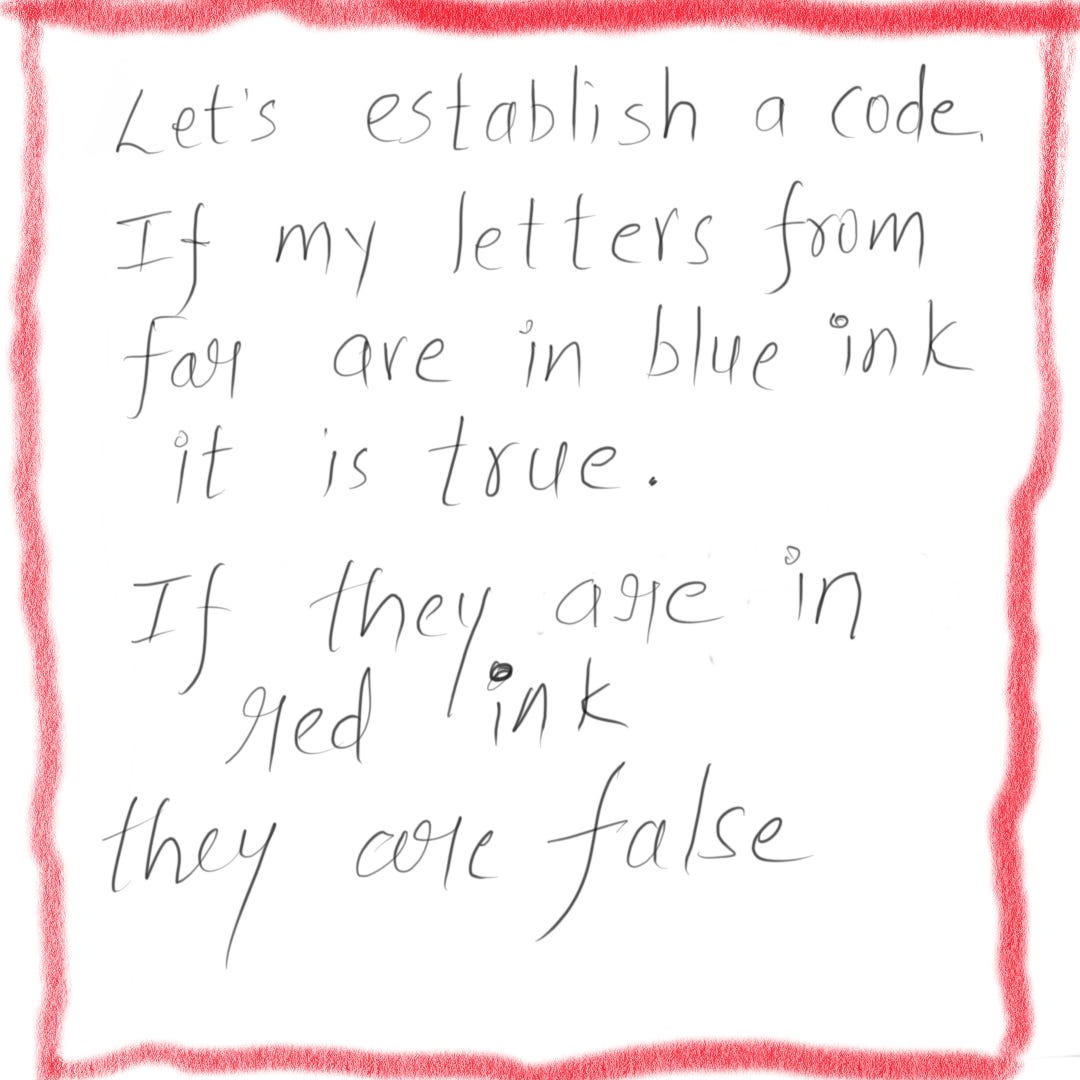 Let's establish a code.
If my letters from
far are in blue ink
it is true.
If they are in
red ink
they are false